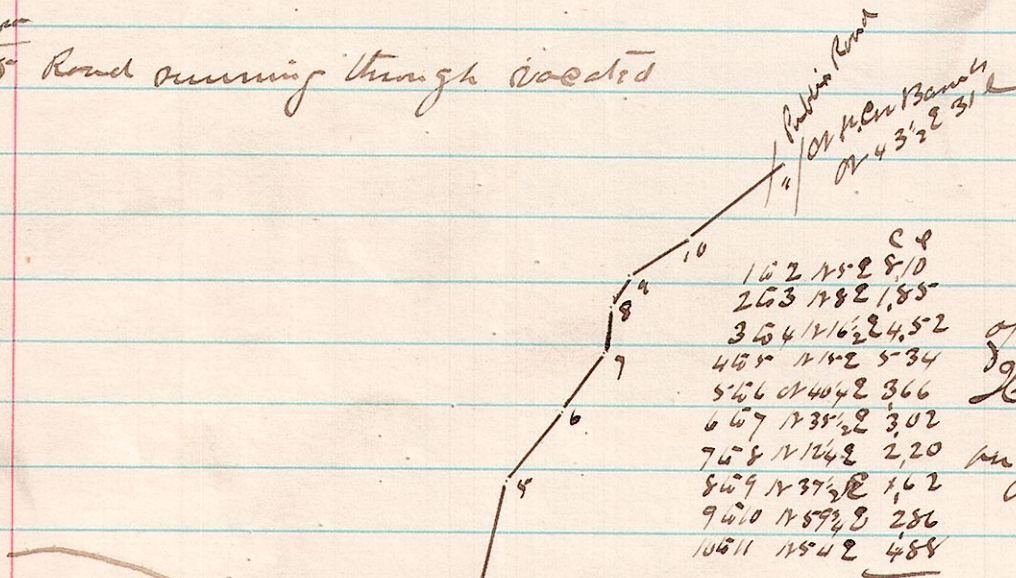 Road running through vacated
Public Road
11
10
9
8
7
6
5
C L
1 to 2 N 5 E 8,10
2 to 3 N 8 E 1,85
3 to 4 N 16½ E 4,52
4 to 5 N 15 E 5 34
5 to 6 N 40¼ E 3,66
6 to 7 N 35½ E 3,02
7 to 8 N 12¼ E 2,20
8 to 9 N 37½ E 1,62
9 to 10 N 59¾ E 2,86
10 to 11 N 54 E 4 88